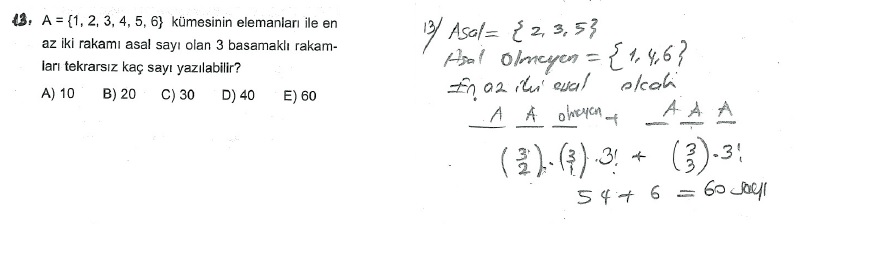 13. A = {1, 2, 3, 4, 5, 6} kümesinin elemanları ile en
az iki rakamı asal sayı olan 3 basamaklı rakam-
ları tekrarsız kaç sayı yazılabilir?
A) 10 B) 20 C) 30 D) 40 E) 60
13/ Asal = {2, 3, 5}
Asal olmayan = {1, 4, 6}
En az iki asal olcak
A A olmayan + A A A
(3 2) . (3 1) . 3! + (3 3) . 3!
54 + 6 = 60 sayı